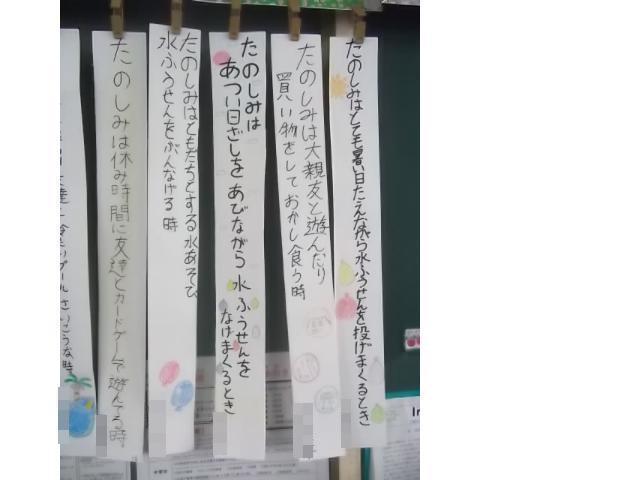 たのしみはとても暑い日たえながら水ふうせんを投げまくるとき
たのしみは大親友と遊んだり
買い物をしておかし食う時
たのしみは
あつい日ざしをあびながら水ふうせんを
なげまくるとき
たのしみはともだちとする水あそび
水ふうせんをぶんなげる時
たのしみは休み時間に友達とカードゲームで遊んでる時
プールさいこうな時
In